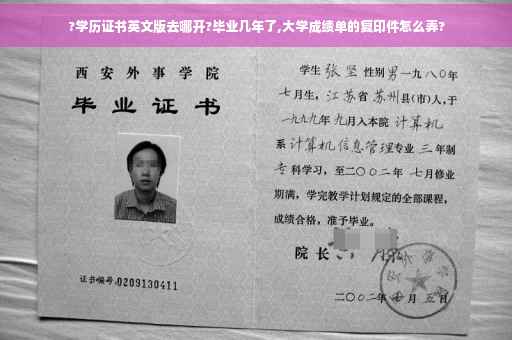 ?学历证书英文版去哪开?毕业几年了,大学成绩单的复印件怎么弄?
西安外事学院
毕业证书
证书编号:0209130411
学生 张坚 性别 男 一九八〇年
七月生, 江苏省 苏州县(市)人,于
一九九九年 九月入本院 计算机
系 计算机信息管理专业 三 年制
专 科学习,至二〇〇二年 七月修业
期满,学完教学计划规定的全部课程,
成绩合格,准予毕业。
院长
二〇〇二年 月 五 日